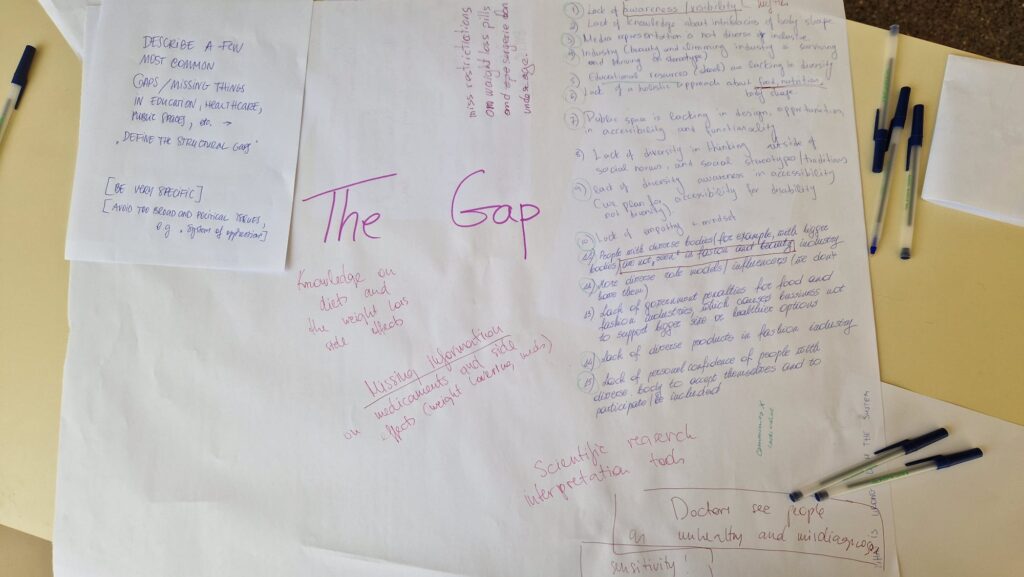 DESCRIBE A FEW
MOST COMMON
GAPS / MISSING THINGS
IN EDUCATION, HEALTHCARE,
PUBLIC SPACES, etc. →
"DEFINE THE STRUCTURAL GAPS"
[BE VERY SPECIFIC]
[AVOID TOO BROAD AND POLITICAL ISSUES,
e.g. system of oppression]
miss restrictions
on weight loss pills
and surgerie
underage.
The Gap
Knowledge on
diets and
the weight loss
side effects
Missing information
on medicaments and side
effects (weight lowering meds)
Scientific research
interpretation tools
Doctors see people
as unhealthy and misdiagnose
sensitivity!
1) Lack of awareness / visibility
2) Lack of knowledge about intricacies of body shape
3) Media representation is not diverse or inclusive
4) Industry (beauty and slimming industry is surviving
and thriving on stereotype)
5) Educational resources (school) are lacking in diversity
6) Lack of a holistic approach about food, nutrition,
body shape
7) Public space is lacking in design, opportunities,
in accessibility and functionality
8) Lack of diversity in thinking outside of
social norms, and social stereotypes/traditions
9) Lack of diversity awareness in accessibility
(we plan for accessibility for disability
not diversity)
10) Lack of empathy - mindset
People with diverse bodies (for example, with bigger
bodies) are not "seen" in fasion and beauty industry
More diverse role models / influencers (we don't
have them)
13) Lack of government penalties for food and
fashion industries, which causes bussiness not
to support bigger size or healthier options
14) Lack of diverse products in fashion industry
15) Lack of personal confidence of people with
diverse body to accept themselves and to
participate / be included
THE SYSTEM